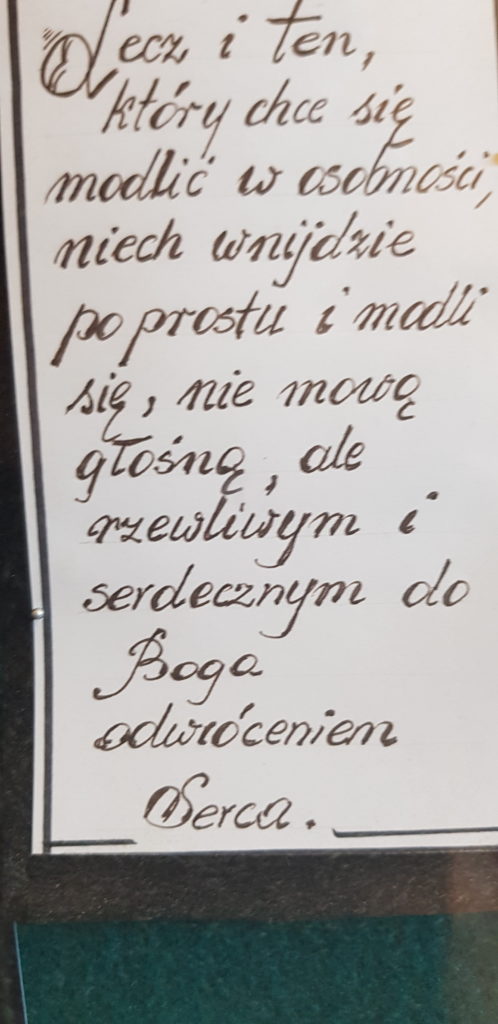 Lecz i ten,
który chce się
modlić w osobności,
niech wnijdzie
po prostu i modli
się, nie mową
głośną, ale
rzewliwym i
serdecznym do
Boga
odwróceniem
Serca.